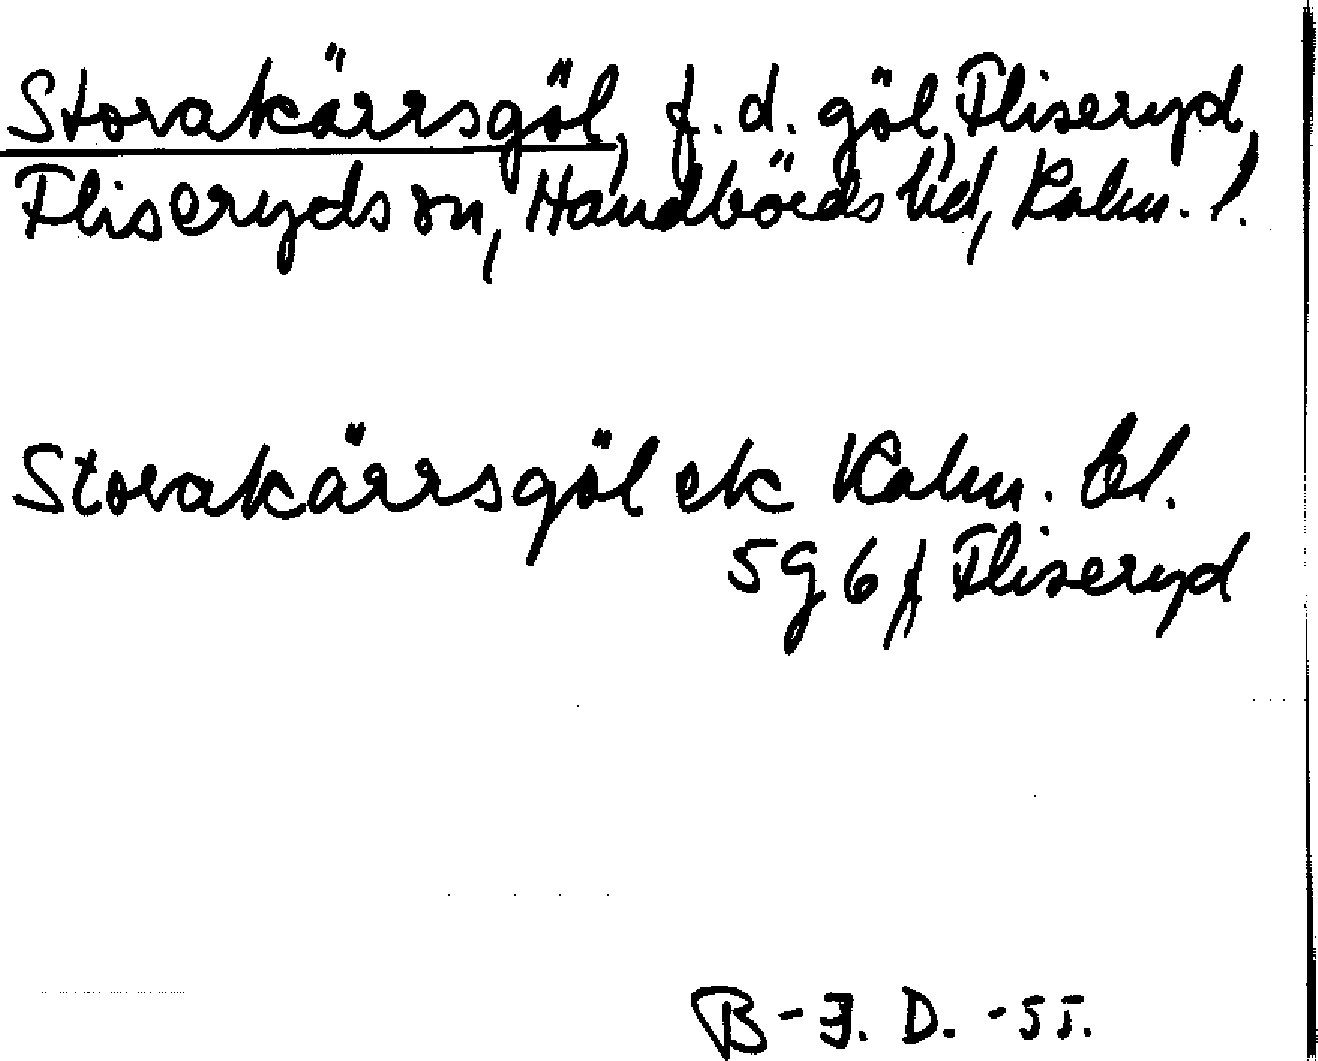 Storakärrsgöl, f.d. göl, Fliseryd,
Fliseryds sn, Handbörds hd, Kalm. l.
Storakärrsgöl ek Kalm. bl.
5g6f Fliseryd
B-J. D. -55.